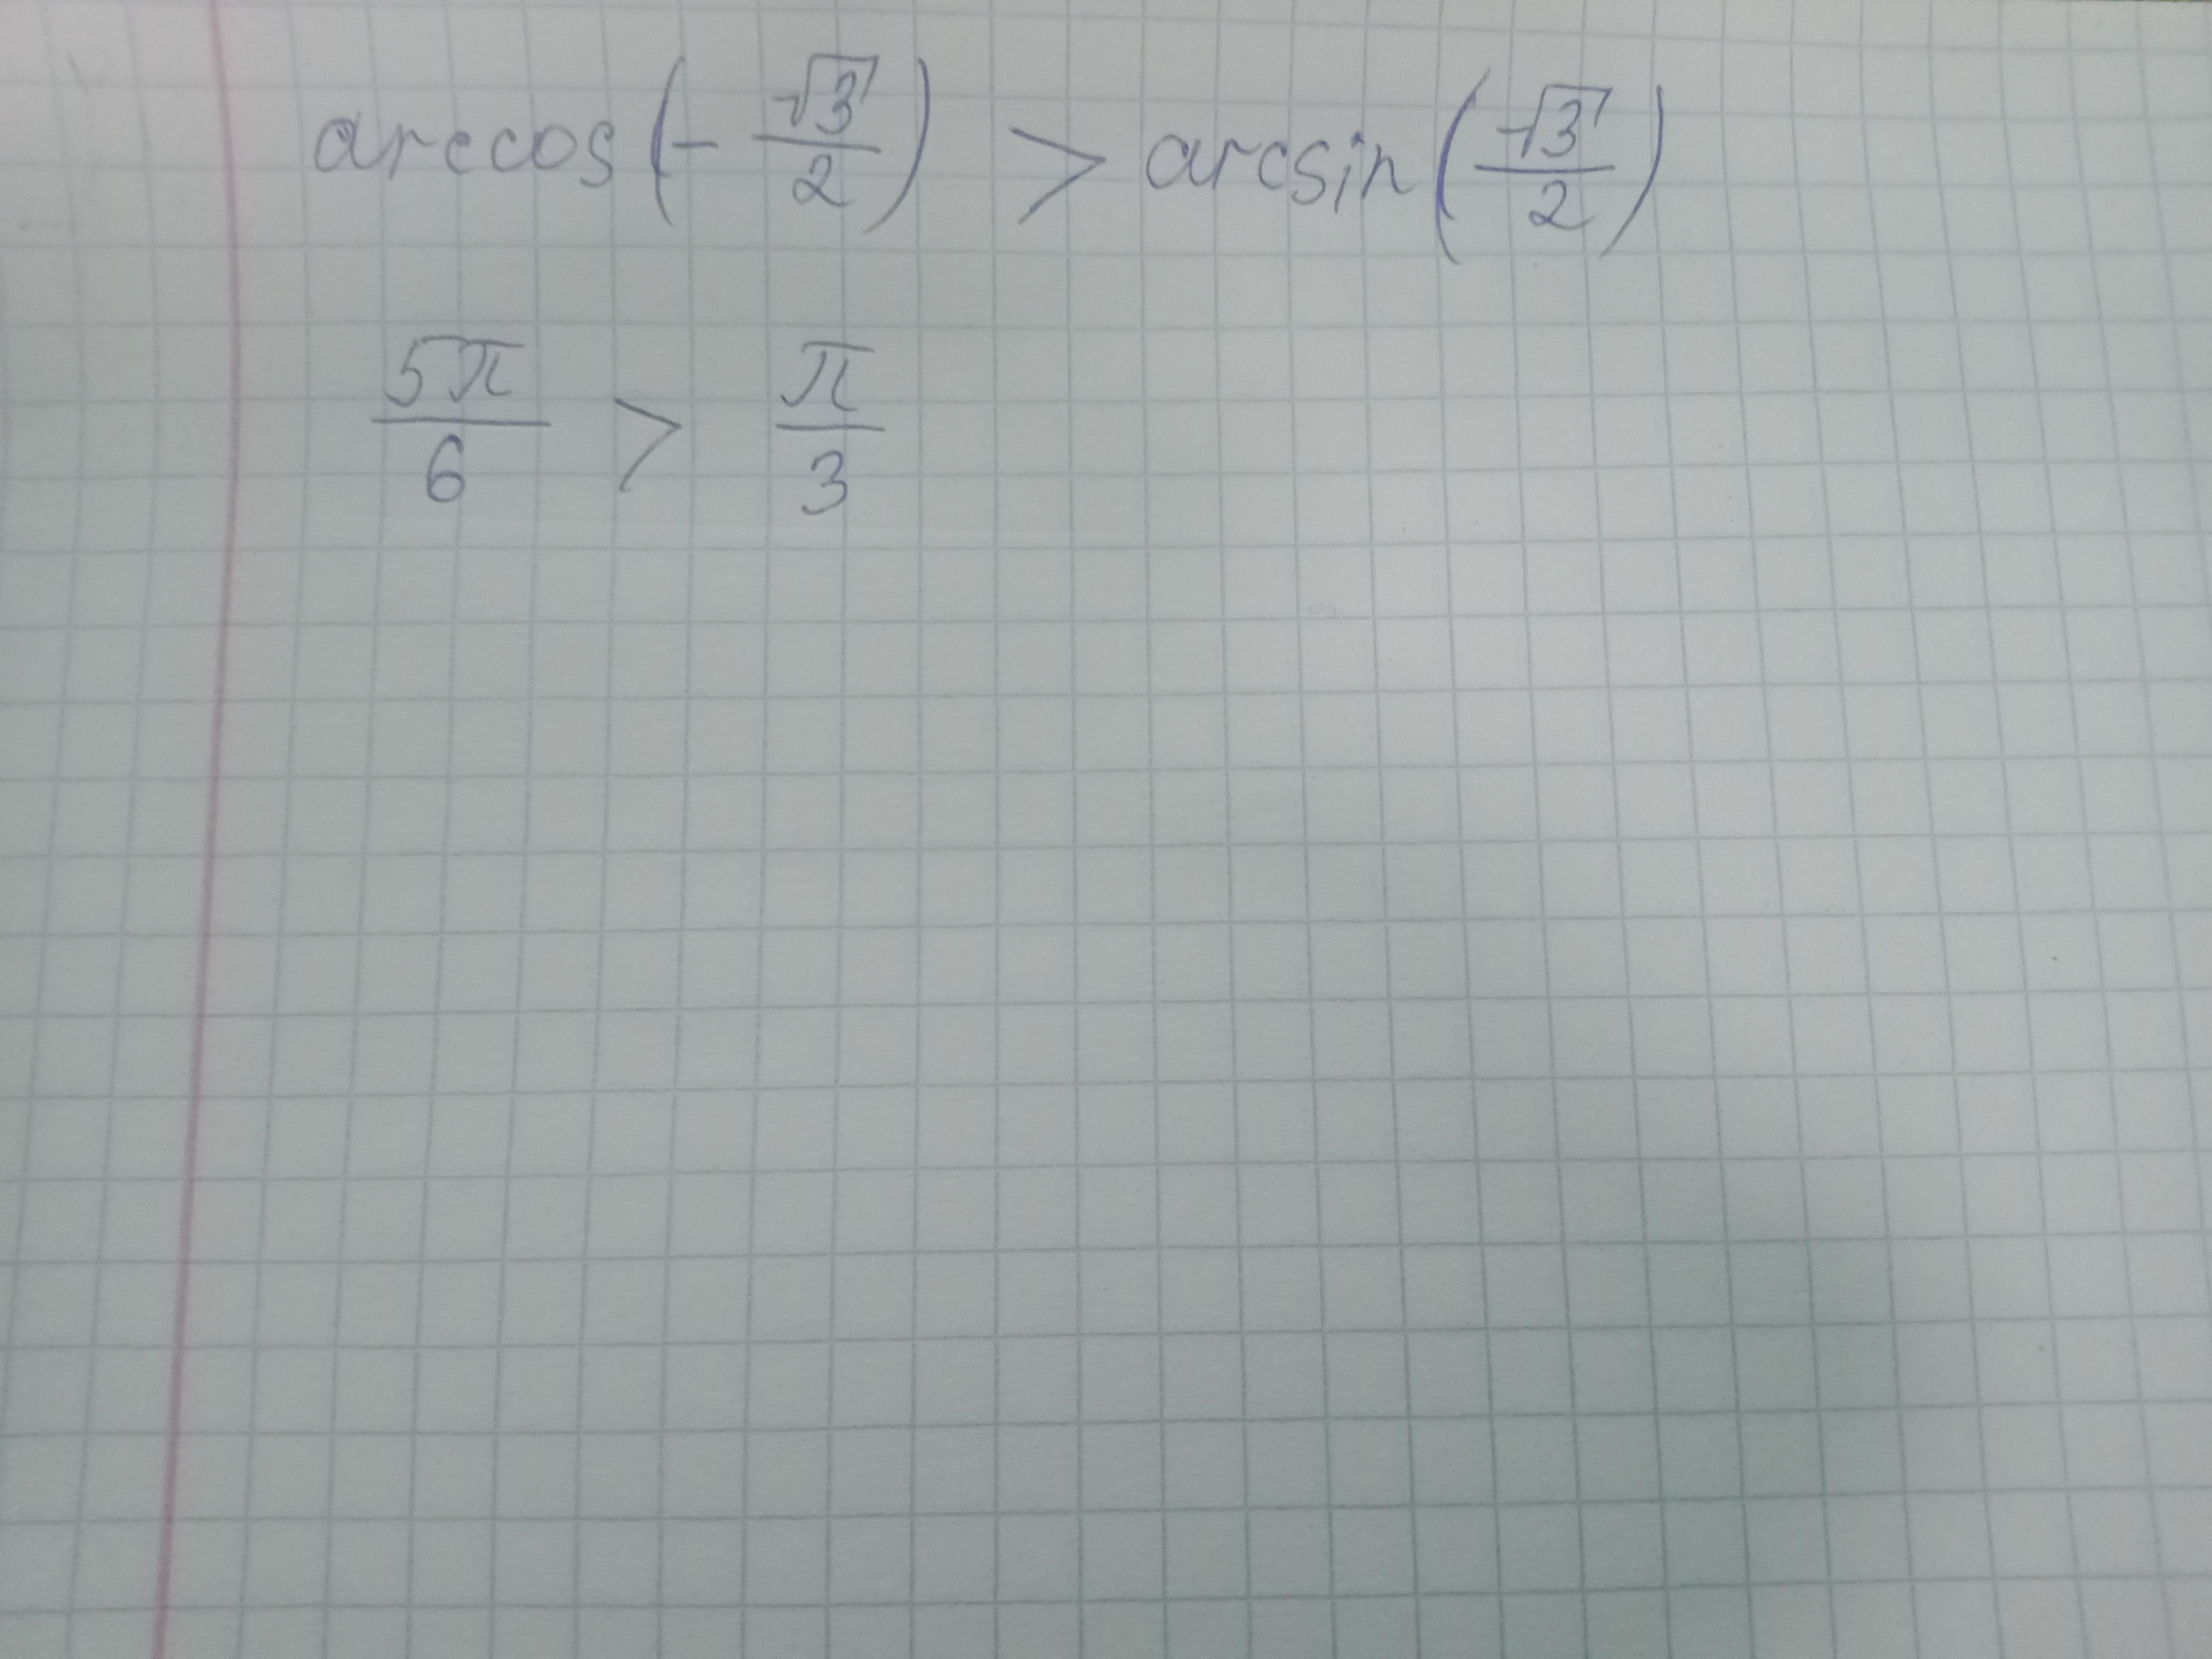 arccos(-√3/2) > arcsin(√3/2)
5π/6 > π/3